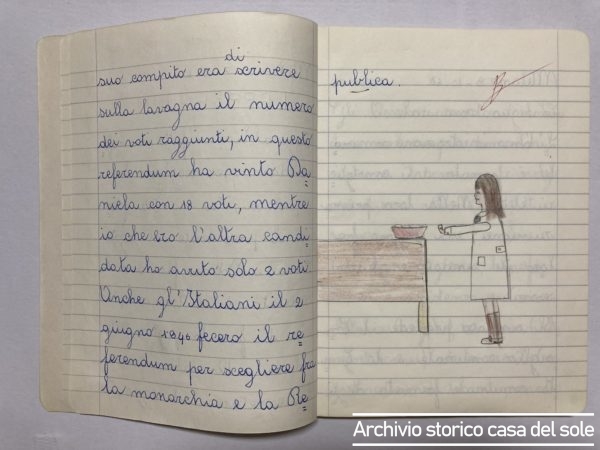 suo compito era di scrivere
sulla lavagna il numero
dei voti raggiunti, in questo
referendum ha vinto Da
niela con 18 voti, mentre
io che ero l'altra candi
data ho avuto solo 2 voti
Anche gl'Italiani il 2
giugno 1946 fecero il re
ferendum per scegliere fra
la monarchia e la Re
pubblica.
Archivio storico casa del sole